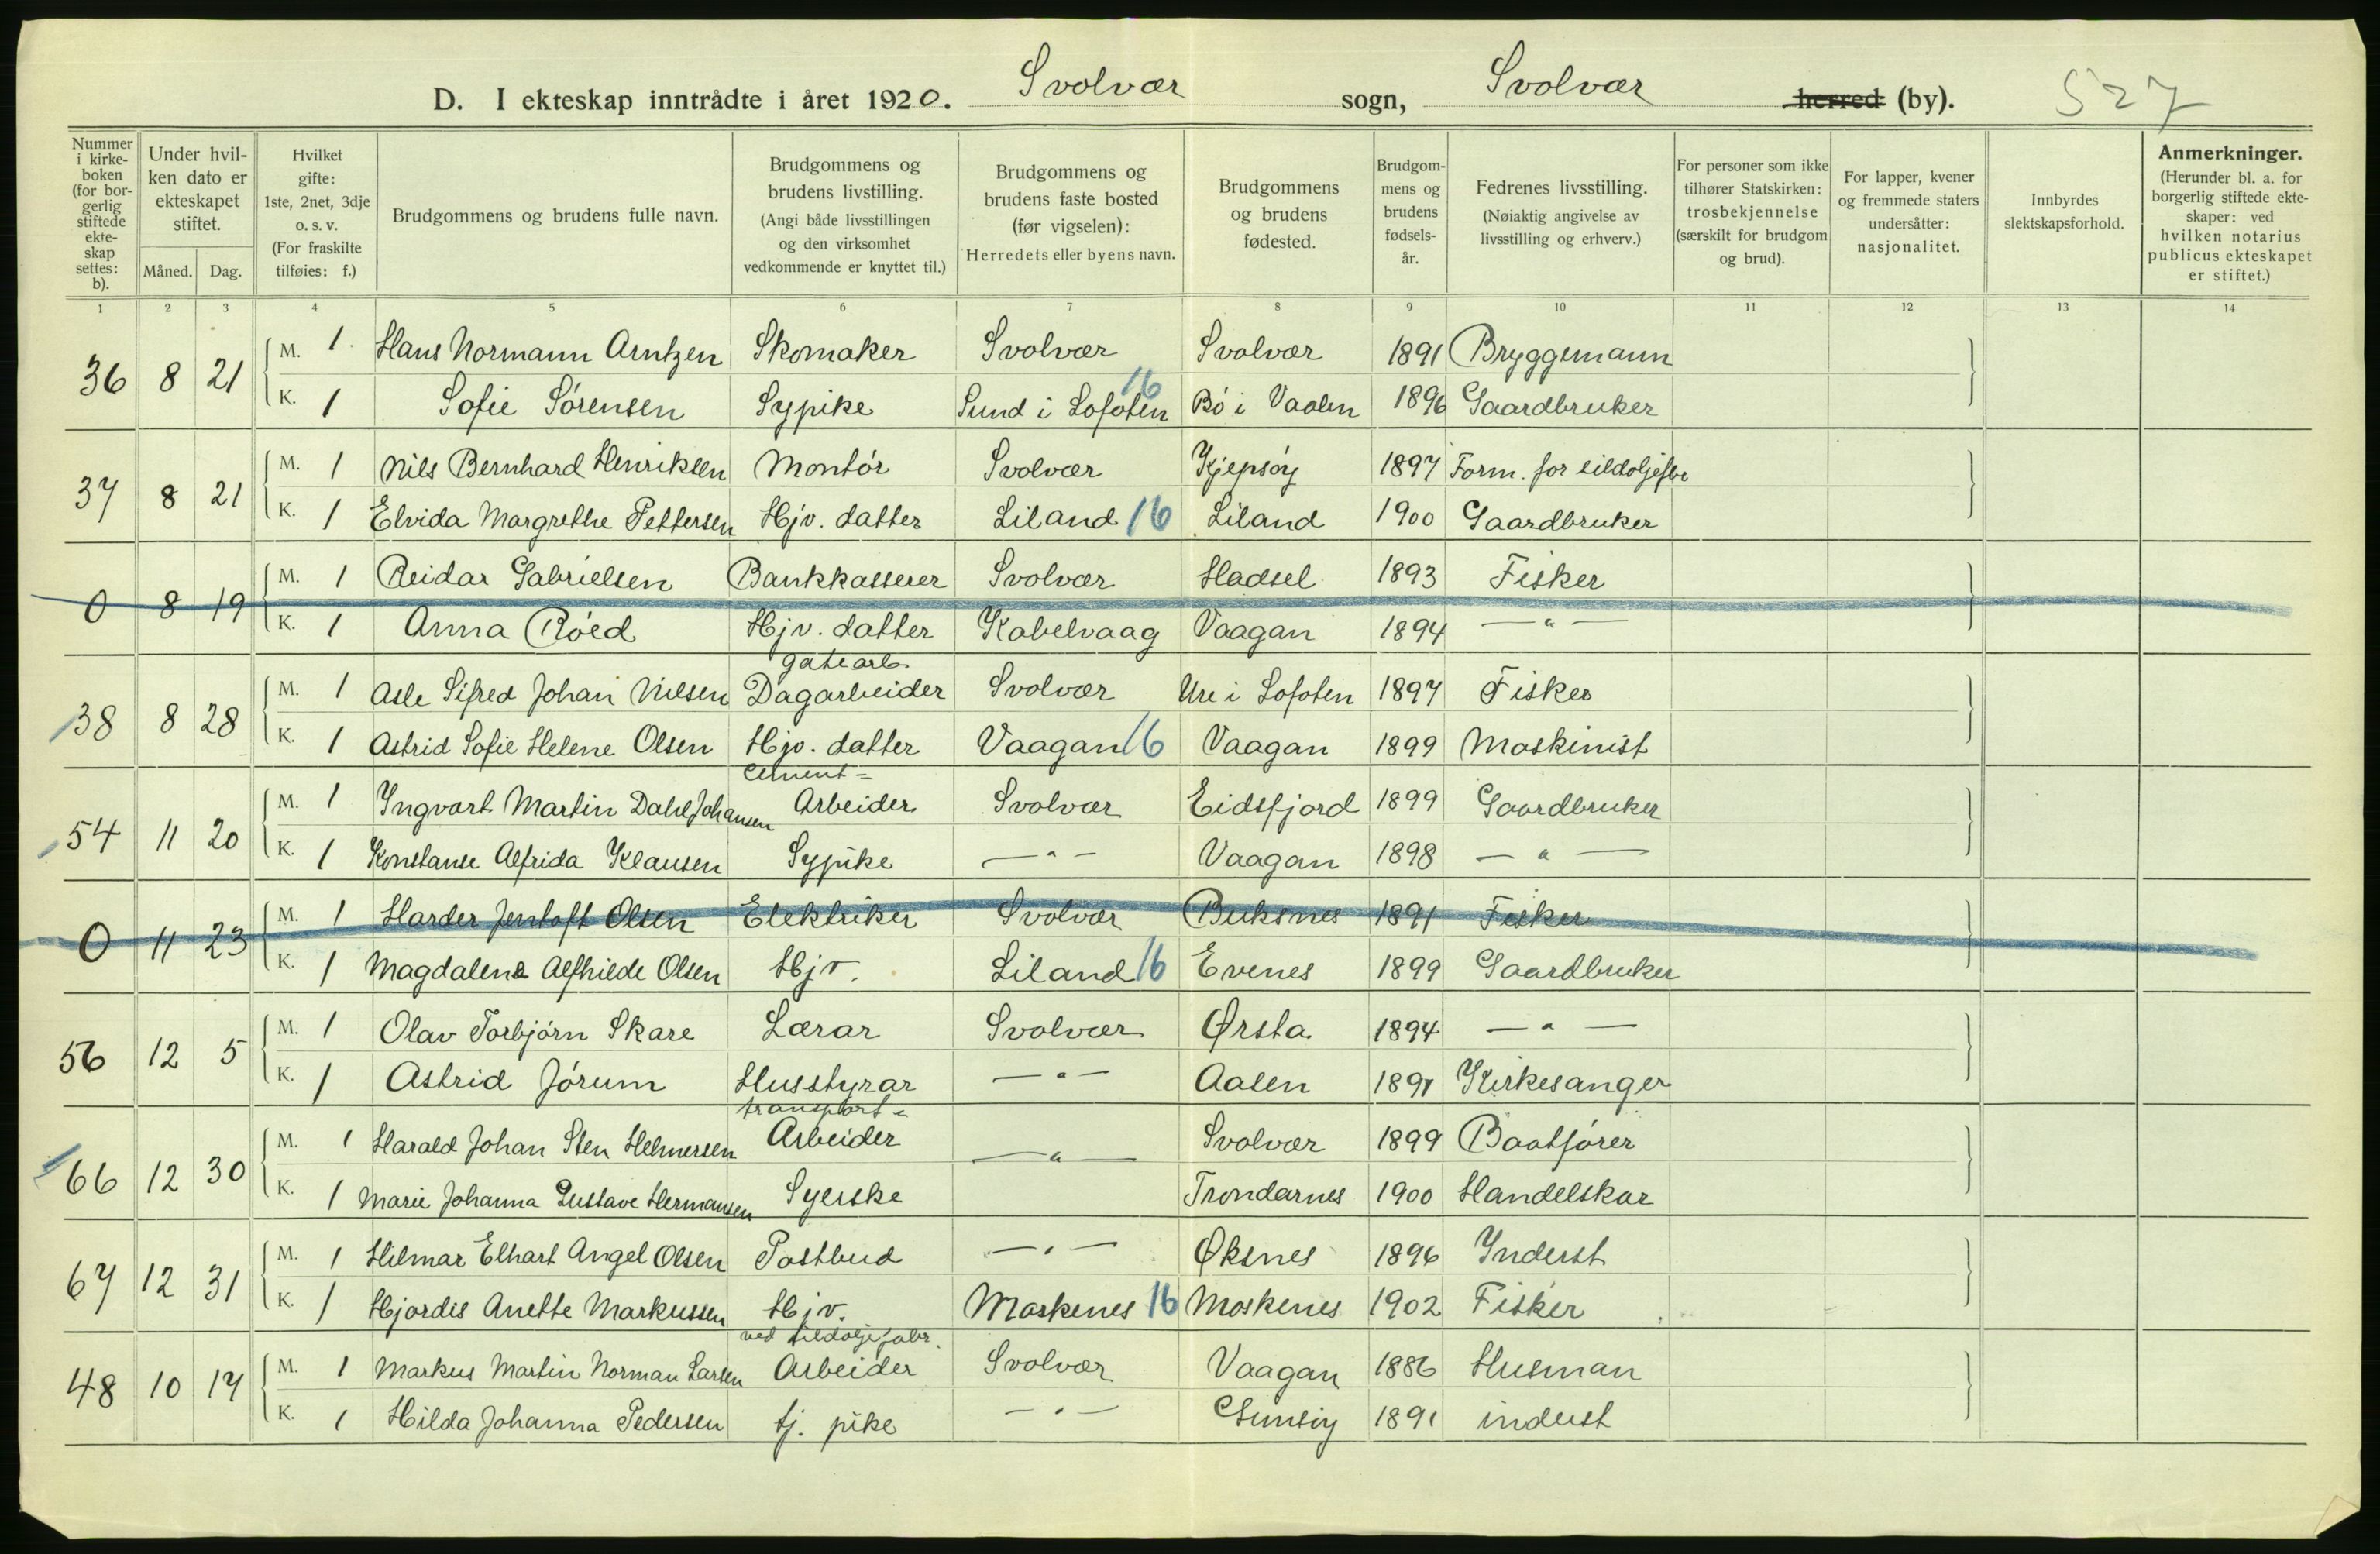 D. I ekteskap inntrådte i året 1920. Svolvær sogn, Svolvær herred (by). 527
Nummer i kirkeboken (for borgerlig stiftede ekteskap settes: b).
Under hvilken dato er ekteskapet stiftet.
Måned. Dag.
Hvilket gifte: 1ste, 2net, 3dje o. s. v. (For fraskilte tilføies: f.)
Brudgommens og brudens fulle navn.
Brudgommens og brudens livstilling. (Angi både livsstillingen og den virksomhet vedkommende er knyttet til.)
Brudgommens og brudens faste bosted (før vigselen): Herredets eller byens navn.
Brudgommens og brudens fødested.
Brudgommens og brudens fødselsår.
Fedrenes livsstilling. (Nøiaktig angivelse av livsstilling og erhverv.)
For personer som ikke tilhører Statskirken: trosbekjennelse (særskilt for brudgom og brud).
For lapper, kvener og fremmede staters undersåtter: nasjonalitet.
Innbyrdes slektskapsforhold.
Anmerkninger. (Herunder bl. a. for borgerlig stiftede ekteskaper: ved hvilken notarius publicus ekteskapet er stiftet.)
1 2 3 4 5 6 7 8 9 10 11 12 13 14
36 8 21 M. 1 Hans Normann Arntzen Skomaker Svolvær Svolvær 1891 Bryggemann
K. 1 Sofie Sørensen Sypike Sund i Lofoten 16 Bø i Vaalen 1896 Gaardbruker
37 8 21 M. 1 Nils Bernhard Henriksen Montør Svolvær Kjepsøy 1897 Form. for sildoljefbr
K. 1 Elvida Margrethe Pettersen Hjv. datter Liland 16 Liland 1900 Gaardbruker
0 8 19 M. 1 Reidar Gabrielsen Bankkasserer Svolvær Hadsel 1893 Fisker
K. 1 Anna Røed Hjv. datter Kabelvaag Vaagan 1894 — " —
gatearb.
38 8 28 M. 1 Asle Sifred Johan Nilsen Dagarbeider Svolvær Ure i Lofoten 1897 Fisker
K. 1 Astrid Sofie Helene Olsen Hjv. datter Vaagan 16 Vaagan 1899 Maskinist
cement=
54 11 20 M. 1 Yngvart Martin Dahl Johansen Arbeider Svolvær Eidsfjord 1899 Gaardbruker
K. 1 Konstanse Alfrida Klausen Sypike — " — Vaagan 1898 — " —
0 11 23 M. 1 Harder Jentoft Olsen Elektriker Svolvær Buksnes 1891 Fisker
K. 1 Magdalena Alfhilde Olsen Hjv. Liland 16 Evenes 1899 Gaardbruker
56 12 5 M. 1 Olav Torbjørn Skare Lærar Svolvær Ørsta 1894 — " —
K. 1 Astrid Jørum Husstyrar — " — Aalen 1891 Kirkesanger
transport=
66 12 30 M. 1 Harald Johan Sten Helmersen Arbeider — " — Svolvær 1899 Baatfører
K. 1 Marie Johanna Gustave Hermansen Syerske Trondarnes 1900 Handelskar
67 12 31 M. 1 Hilmar Elhart Angel Olsen Postbud — " — Øksnes 1896 Inderst
K. 1 Hjordis Anette Markussen Hjv. Moskenes 16 Moskenes 1902 Fisker
ved sildoljefabr.
48 10 17 M. 1 Markus Martin Norman Larsen Arbeider Svolvær Vaagan 1886 Husman
K. 1 Hilda Johanna Pedersen tj. pike — " — 1891 inderst